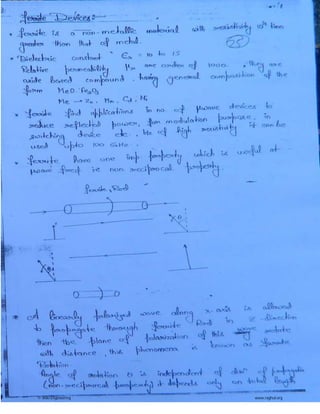 Ferrite Devices :-
* ferrite is a non-metallic material with resistivity 10¹⁴ times
greater than that of metal.
(25)
* Dielectric constant Er = 10 to 15
Relative permeability Mr are order of 1000. They are
oxide based compound, having general composition of the
form MeO. Fe₂O₃
Me → Zn, Mn, Cd, Ni
* ferrite find applications in no of μwave devices to
reduce reflected power, for modulation purpose, in
switching device etc. of high resistivity it can be
used upto 100 GHz.
* ferrite have one imp property which is useful at
μwave freq ie non reciprocal property
ferrite Rod
θ
* A linearly polarized wave along x-axis is allowed
to propagate through ferrite Rod in z-direction
then the plane of polarization of this wave rotate
with distance, this phenomena is known as
Rotation
Angle of rotation θ is independent of dirⁿ of propagatⁿ
(non-reciprocal property) it depends only on total length
www.raghul.org